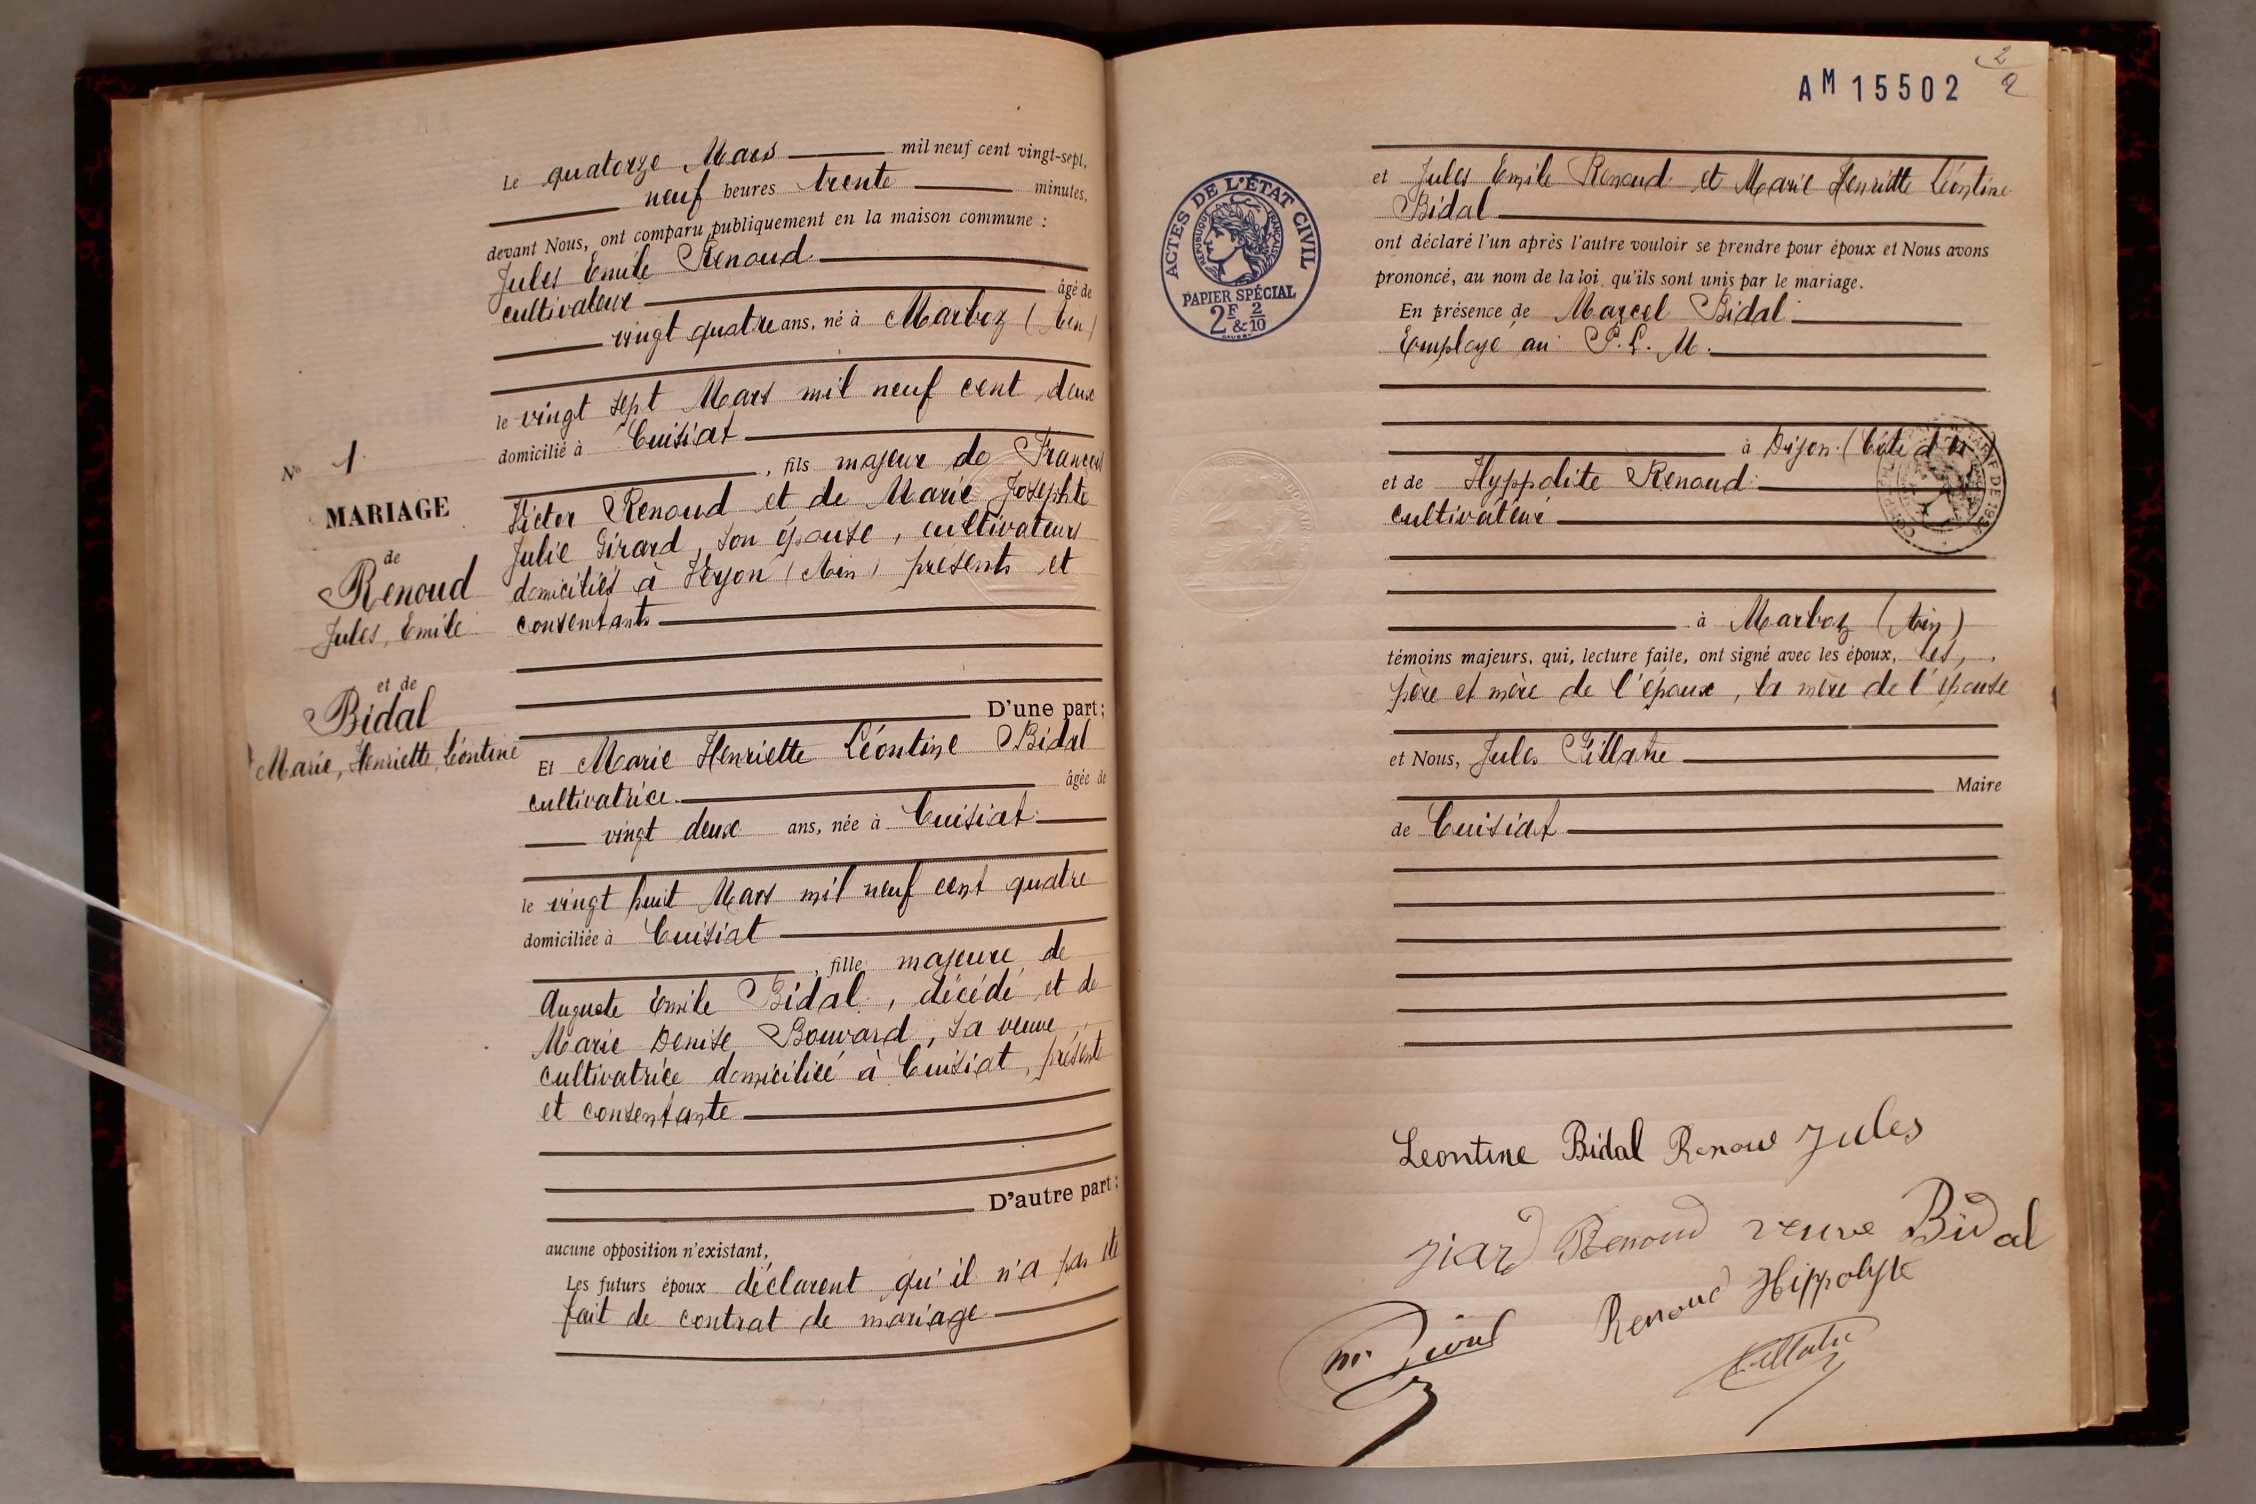 Le quatorze Mars mil neuf cent vingt-sept,
neuf heures trente minutes,
devant Nous, ont comparu publiquement en la maison commune :
Jules Emile Renoud
cultivateur âgé de
vingt quatre ans, né à Marboz (Ain)
le vingt sept Mars mil neuf cent deux
domicilié à Cuisiat
, fils majeur de François
Victor Renoud et de Marie Josephte
Julie Girard, son épouse, cultivateurs
domiciliés à Verjon (Ain) présents et
consentants
D'une part ;
Nº 1
MARIAGE
de
Renoud
Jules, Emile
et de
Bidal
Marie, Henriette, Léontine
Et Marie Henriette Léontine Bidal
cultivatrice âgée de
vingt deux ans, née à Cuisiat
le vingt huit Mars mil neuf cent quatre
domiciliée à Cuisiat
, fille majeure de
Auguste Emile Bidal, décédé et de
Marie Denise Bouvard, sa veuve,
cultivatrice domiciliée à Cuisiat, présente
et consentante
D'autre part :
aucune opposition n'existant,
Les futurs époux déclarent qu'il n'a pas été
fait de contrat de mariage
AM 15502
2
ACTES DE L'ÉTAT CIVIL
RÉPUBLIQUE FRANÇAISE
PAPIER SPÉCIAL
2F & 2/10
et Jules Emile Renoud et Marie Henriette Léontine
Bidal
ont déclaré l'un après l'autre vouloir se prendre pour époux et Nous avons
prononcé, au nom de la loi, qu'ils sont unis par le mariage.
En présence de Marcel Bidal
Employé au P. L. M.
à Dijon (Côte d'or)
et de Hyppolite Renoud
cultivateur
à Marboz (Ain)
témoins majeurs, qui, lecture faite, ont signé avec les époux, les,
père et mère de l'époux, la mère de l'épouse
et Nous, Jules Pillatre
Maire
de Cuisiat
Leontine Bidal Renoud Jules
Renoud veuve Bidal
Renoud Hippolyte